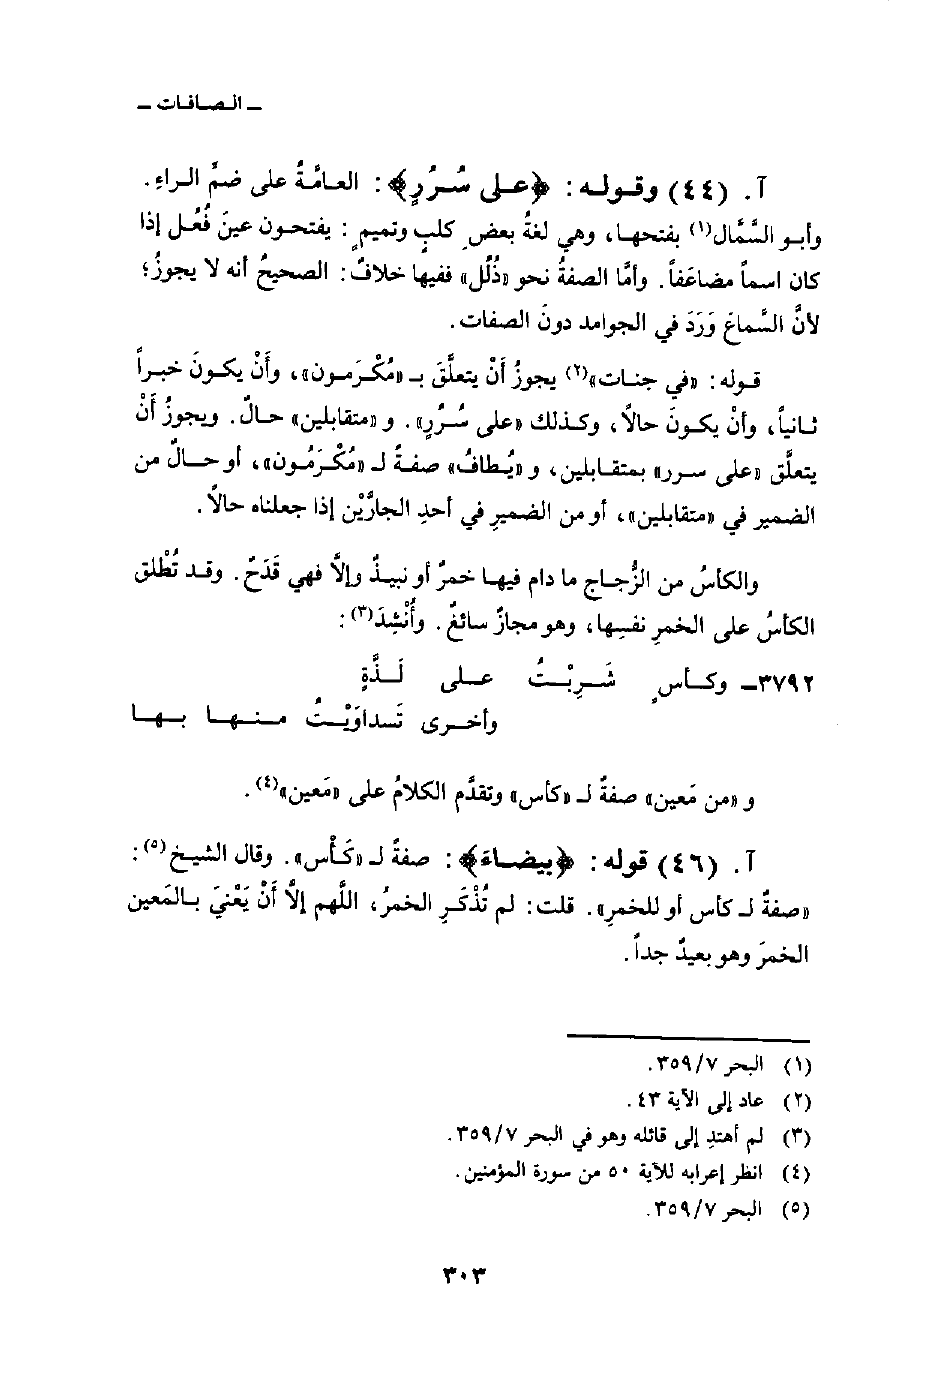 ـ الـصـافـات ـ
آ. (٤٤) وقـولـه: ﴿عـلـى سُـرُرٍ﴾: العـامَّـةُ على ضمِّ الـراءِ.
وأبـو السَّمَّال(١) بفتحهـا، وهي لغةُ بعضِ كلبٍ وتميمٍ: يفتحـون عينَ فُعُـل إذا
كان اسمـاً مضاعَفاً. وأمَّا الصفةُ نحو «ذُلُل» ففيها خلافٌ: الصحيحُ أنه لا يجوزُ؛
لأنَّ السَّماعَ وَرَدَ في الجوامد دونَ الصفات.
قـوله: «في جنـات»(٢) يجوزُ أَنْ يتعلَّقَ بـ «مُكْـرَمـون»، وأَنْ يكـونَ خبـراً
ثـانيـاً، وأنْ يكـونَ حالاً، وكـذلك «على سُـرُرٍ». و «متقابلين» حـالٌ. ويجوزُ أَنْ
يتعلَّق «على سـرر» بمتقـابلين، و «يُـطافُ» صفـةً لـ «مُكْـرَمُـون»، أو حـالٌ من
الضمير في «متقابلين»، أو من الضميرِ في أحدِ الجارَّيْن إذا جعلناه حالاً.
والكأسُ من الزُّجـاج ما دام فيهـا خمرٌ أو نبيـذٌ وإلاَّ فهي قَدَحٌ. وقـد تُطْلق
الكأسُ على الخمرِ نفسِها، وهو مجازٌ سائغٌ. وأُنْشِدَ(٣):
٣٧٩٢ـ وكـأسٍ شَـرِبْـتُ عـلـى لَـذَّةٍ
وأخـرى تَـداوَيْـتُ مـنـهـا بـهـا
و «من مَعين» صفةٌ لـ «كأس» وتقدَّم الكلامُ على «مَعين»(٤).
آ. (٤٦) قوله: ﴿بيضـاءَ﴾: صفةٌ لـ «كَـأْس». وقال الشيـخ(٥):
«صفةٌ لـ كأس أو للخمرِ». قلت: لم تُذْكَـرِ الخمرُ، اللَّهم إلاَّ أَنْ يَعْنيَ بـالمَعين
الخمرَ وهو بعيدٌ جداً.
(١) البحر ٣٥٩/٧.
(٢) عاد إلى الآية ٤٣.
(٣) لم أهتدِ إلى قائله وهو في البحر ٣٥٩/٧.
(٤) انظر إعرابه للآية ٥٠ من سورة المؤمنين.
(٥) البحر ٣٥٩/٧.
٣٠٣